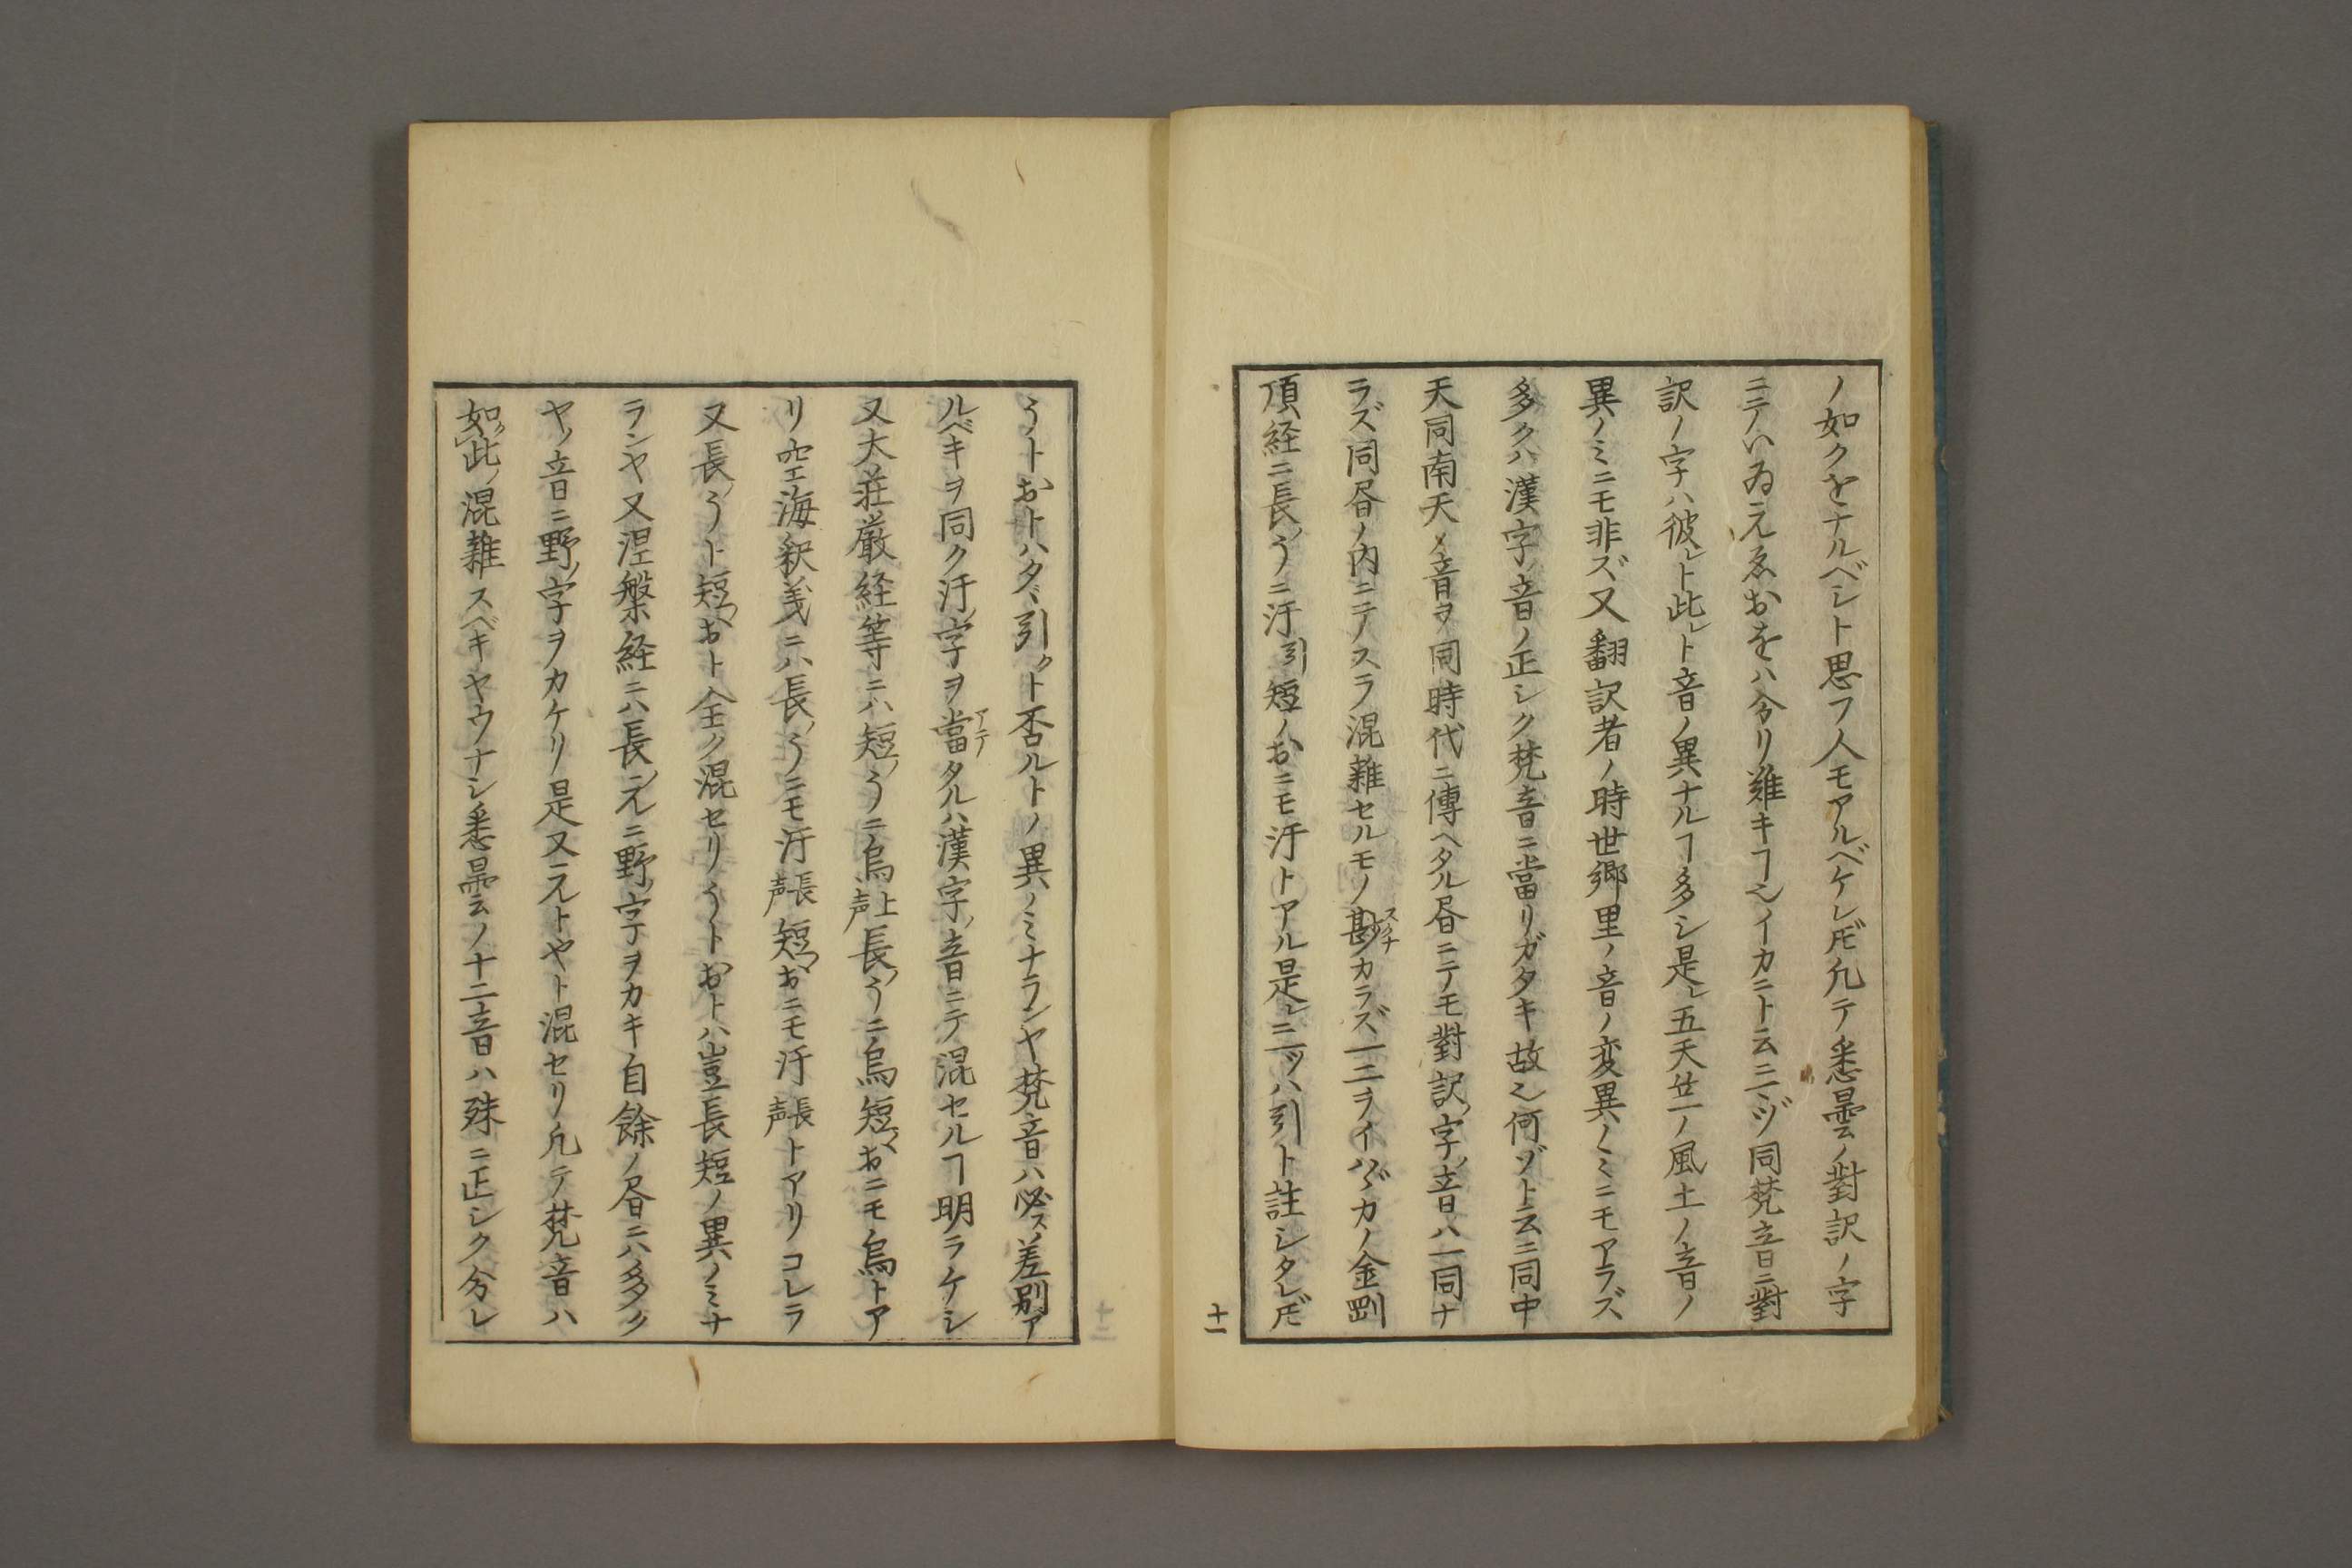 ノ如クをナルベシト思フ人モアルベケレ𪜈凡テ悉曇ノ對訳ノ字
ニテノいゐえゑおをハ分リ難キヿ也イカニト云ニヅ同梵音ニ對
訳ノ字ハ彼レト此レト音ノ異ナルヿ多シ是レ五天竺ノ風土ノ音ノ
異ノミニモ非ズ又翻訳者ノ時世郷里ノ音ノ変異ノミニモアラズ
多クハ漢字ノ音ノ正シク梵音ニ當リガタキ故也何ゾト云ニ同中
天同南天ノ音ヲ同時代ニ傳ヘタル昏ニテモ對訳ノ字ノ音ハ一同ナ
ラズ同昏ノ内ニテスラ混雑セルモノ尠スクナカラズ一二ヲイハヾカノ金剛
頂経ニ長ノうニ汙引短ノおニモ汙トアル是レ二ツハ引ト註シタレ𪜈
十一
うトおトハタヾ引クト否ルトノ異ノミナランヤ梵音ハ必ズ差別ア
ルベキヲ同ク汙ノ字ヲ當アテタルハ漢字ノ音ニテ混セルヿ明ラケシ
又大荘厳経等ニハ短ノうニ烏上声長ノうニ烏短ノおニモ烏トア
リ空海釈義ニハ長ノうニモ汙長声短ノおニモ汙長声トアリコレラ
又長ノうト短ノおト全ク混セリうトおトハ豈長短ノ異ノミナ
ランヤ又涅槃経ニハ長ノえニ野ノ字ヲカキ自餘ノ昏ニハ多ク
ヤノ音ニ野ノ字ヲカケリ是又えトヤト混セリ凡テ梵音ハ
如ク此ノ混雑スベキヤウナシ悉曇ノ十二音ハ殊ニ正シク分レ